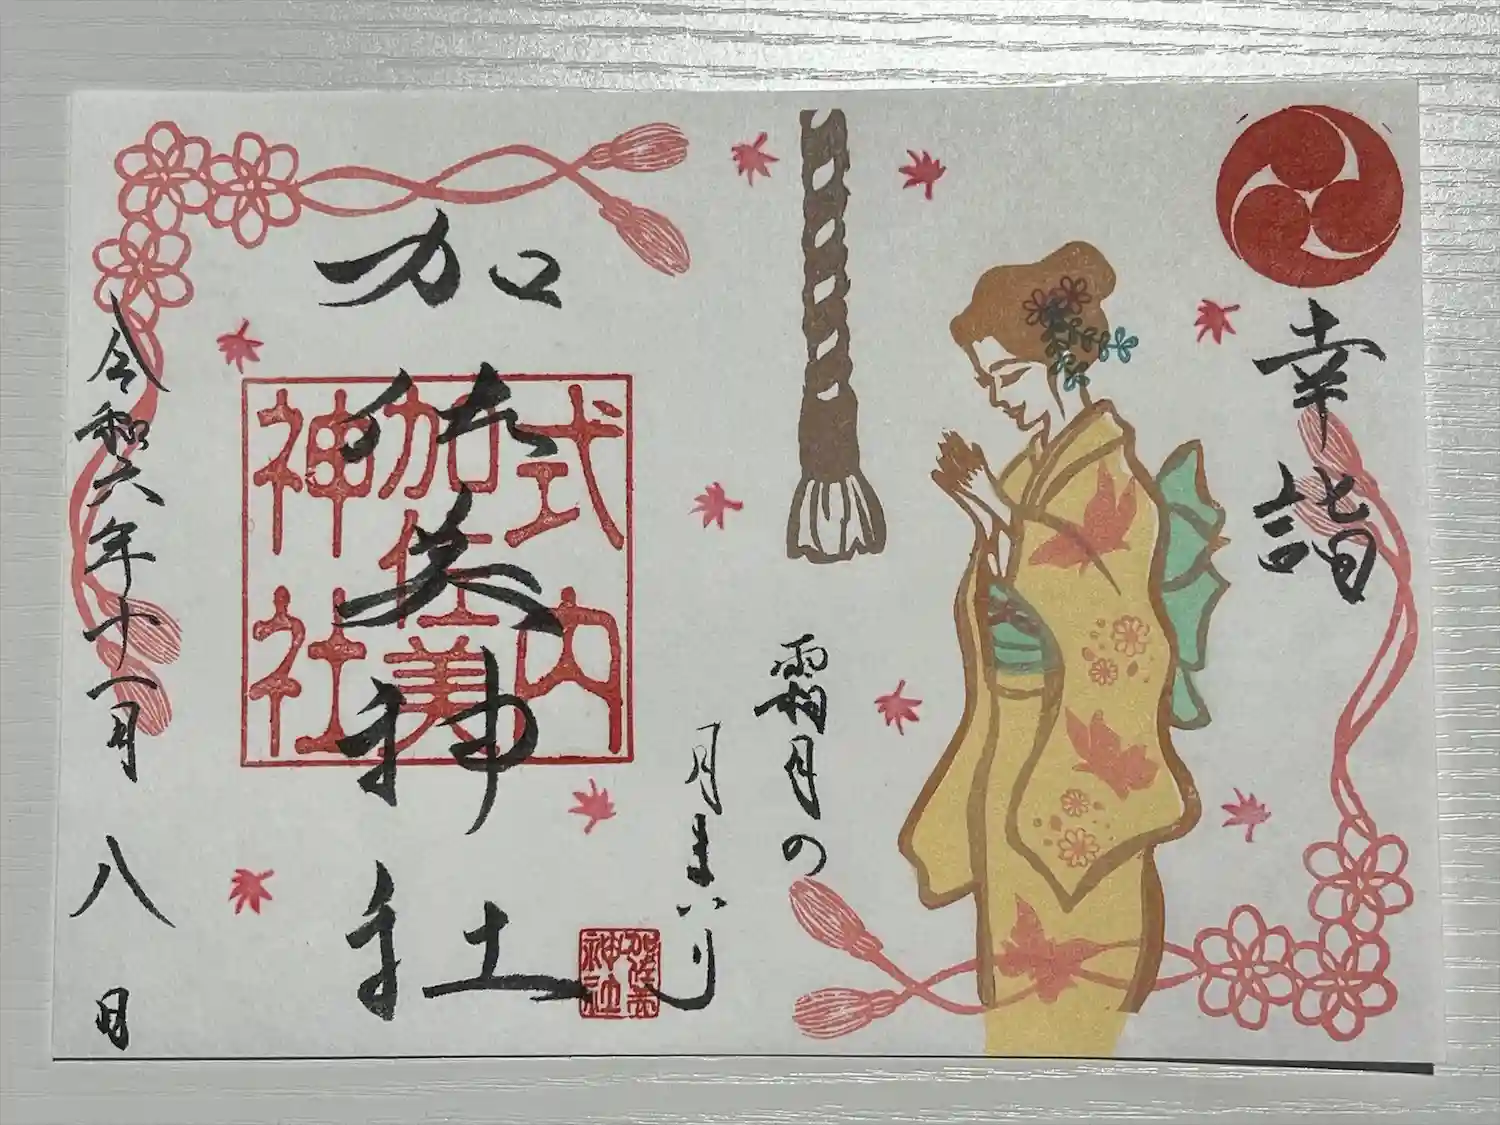 幸詣
霜月の
月まいり
加佐美神社
式内
加佐美
神社
加佐美
神社
令和六年十一月八日